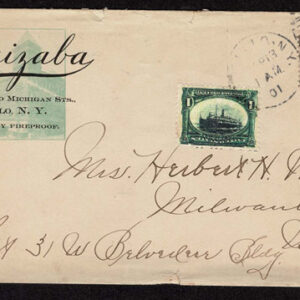 izaba
MICHIGAN STS.,
LO, N. Y.
Y FIREPROOF.
1 AM
01
1 1
Mrs. Herbert H.
Milwau
31 W Belvedere Bldg